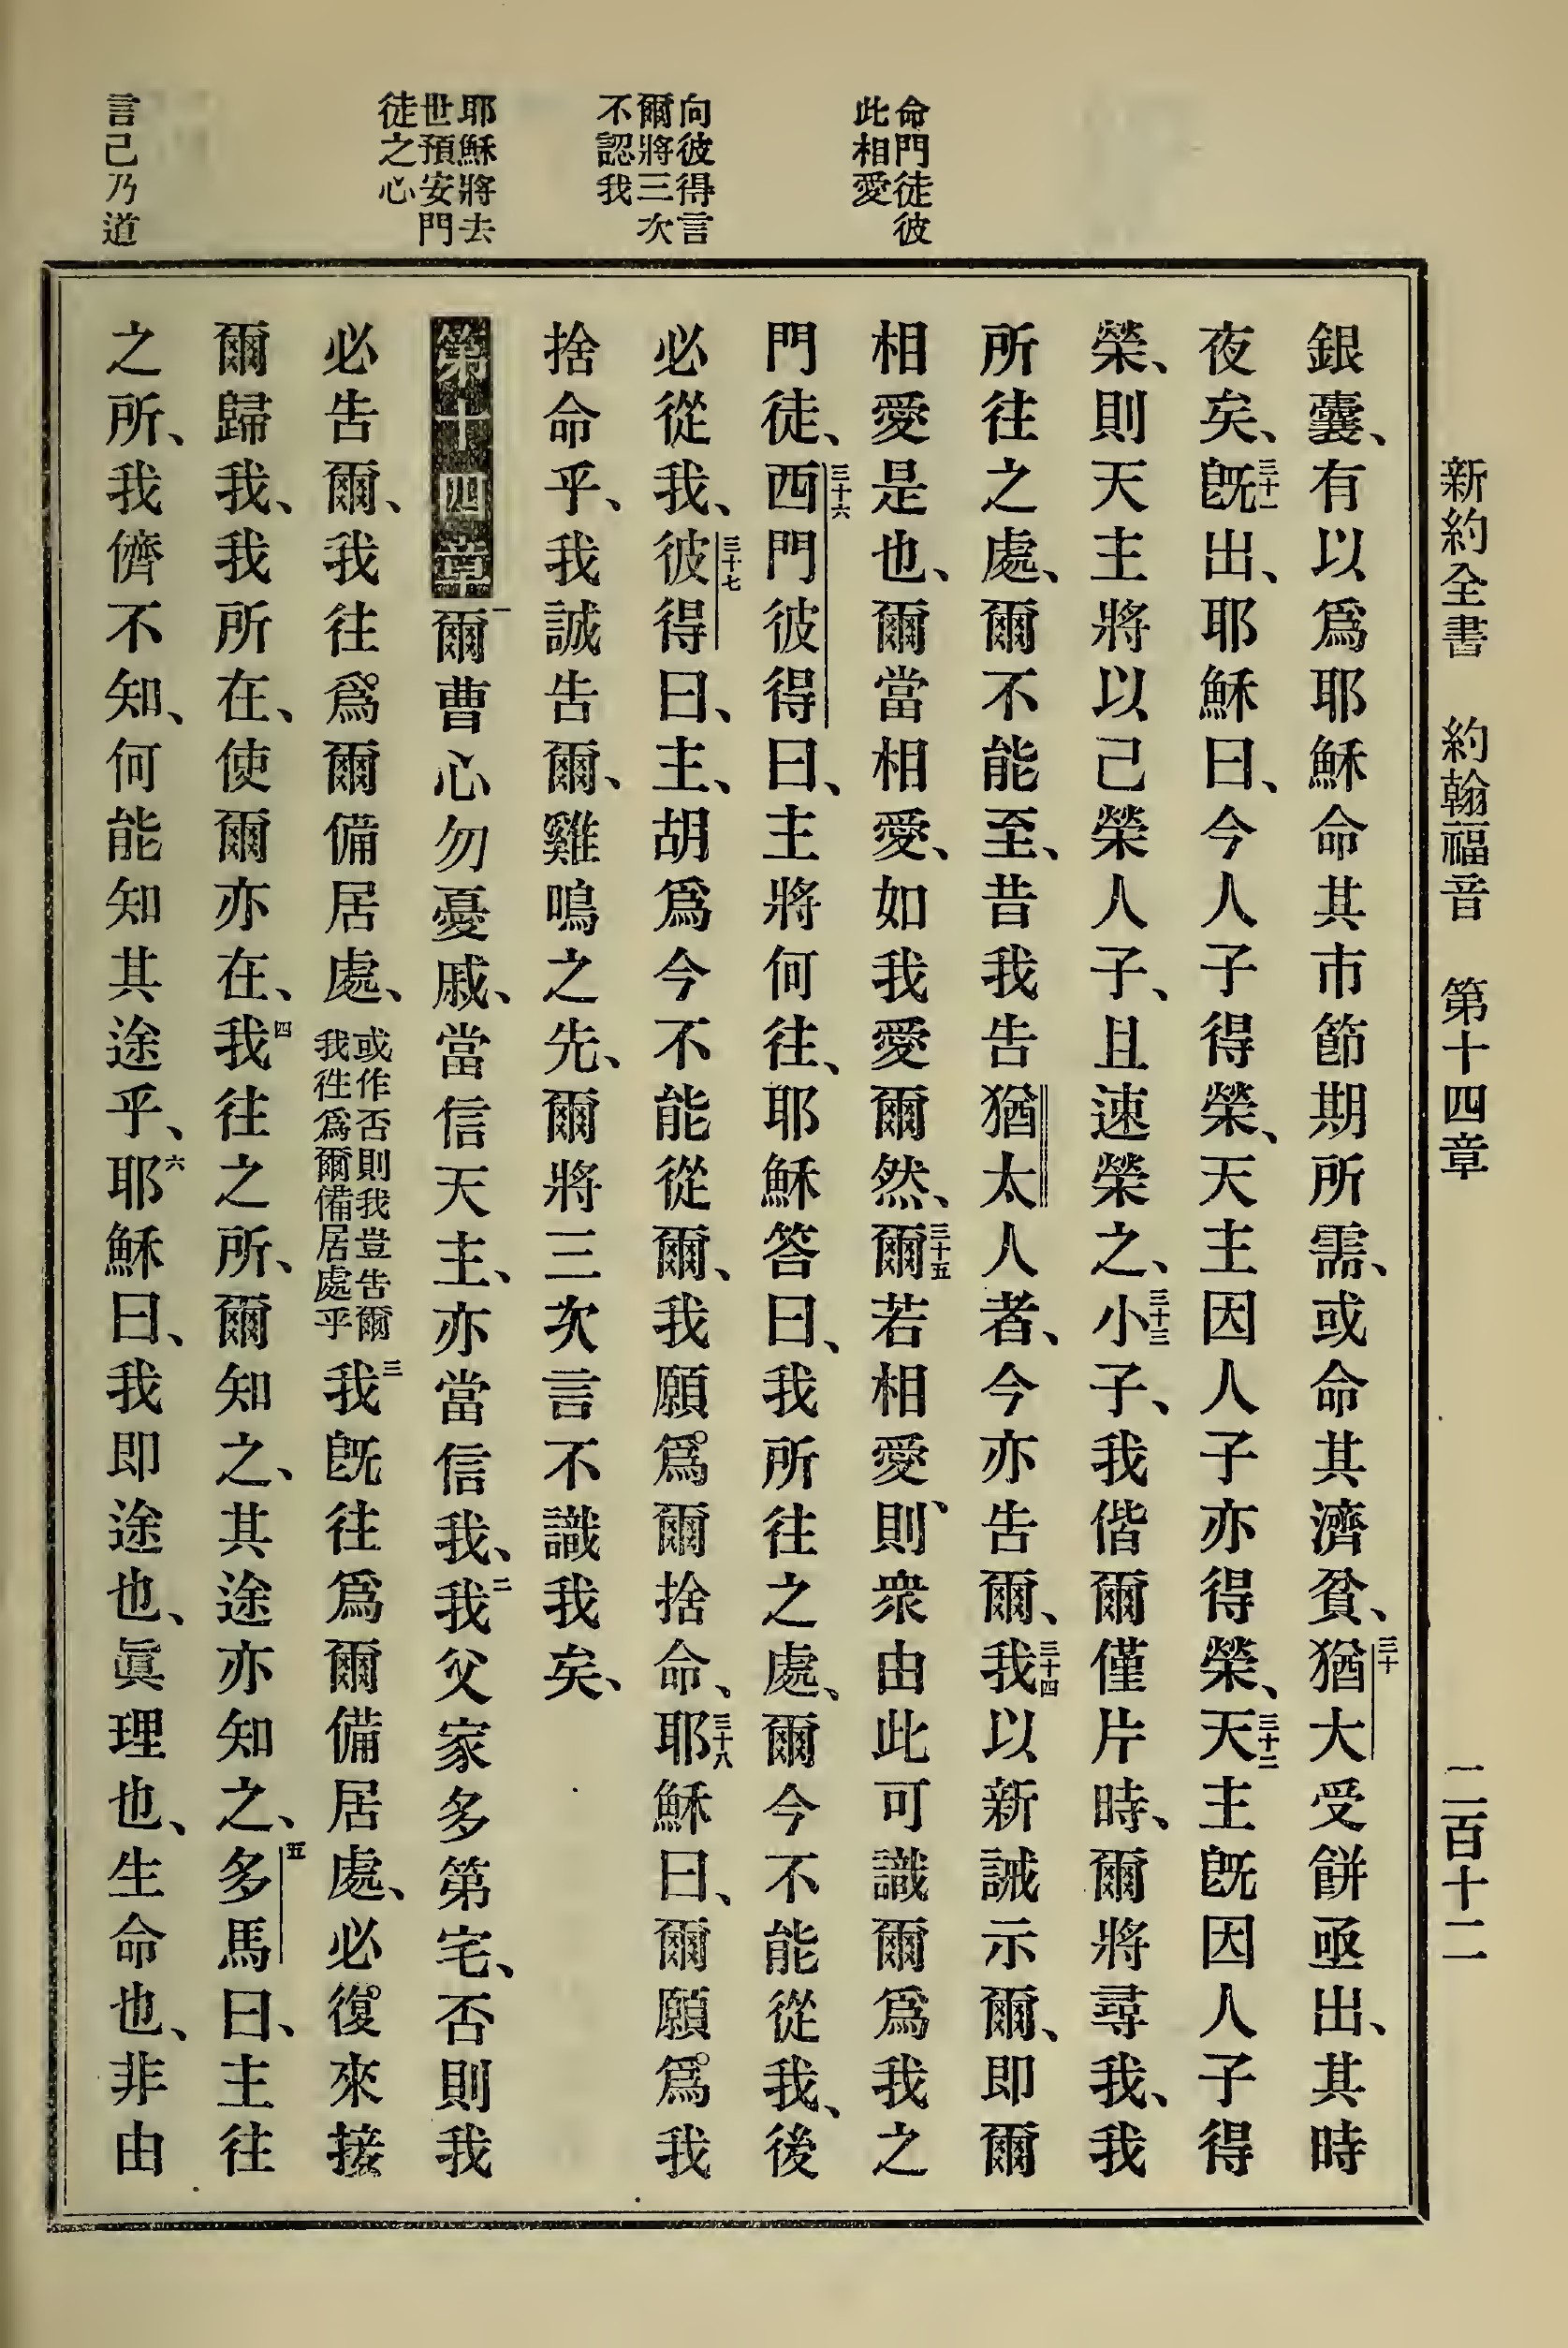 新約全書 約翰福音 第十四章 二百十二
命門徒彼
此相愛
向彼得言
爾將三次
不認我
耶穌將去
世預安門
徒之心
言己乃道
銀囊、有以爲耶穌命其市節期所需、或命其濟貧、三十猶大受餅亟出、其時
夜矣、三十一旣出、耶穌曰、今人子得榮、天主因人子亦得榮、三十二天主旣因人子得
榮、則天主將以己榮人子、且速榮之、三十三小子、我偕爾僅片時、爾將尋我、我
所往之處、爾不能至、昔我告猶太人者、今亦告爾、三十四我以新誡示爾、即爾
相愛是也、爾當相愛、如我愛爾然、三十五爾若相愛、則衆由此可識爾爲我之
門徒、三十六西門彼得曰、主將何往、耶穌答曰、我所往之處、爾今不能從我、後
必從我、三十七彼得曰、主、胡爲今不能從爾、我願爲爾捨命、三十八耶穌曰、爾願爲我
捨命乎、我誠告爾、雞鳴之先、爾將三次言不識我矣、
第十四章 一爾曹心勿憂戚、當信天主、亦當信我、二我父家多第宅、否則我
必告爾、我往爲爾備居處、或作否則我豈告爾我往爲爾備居處乎三我旣往爲爾備居處、必復來接
爾歸我、我所在、使爾亦在、四我往之所、爾知之、其途亦知之、五多馬曰、主往
之所、我儕不知、何能知其途乎、六耶穌曰、我即途也、眞理也、生命也、非由